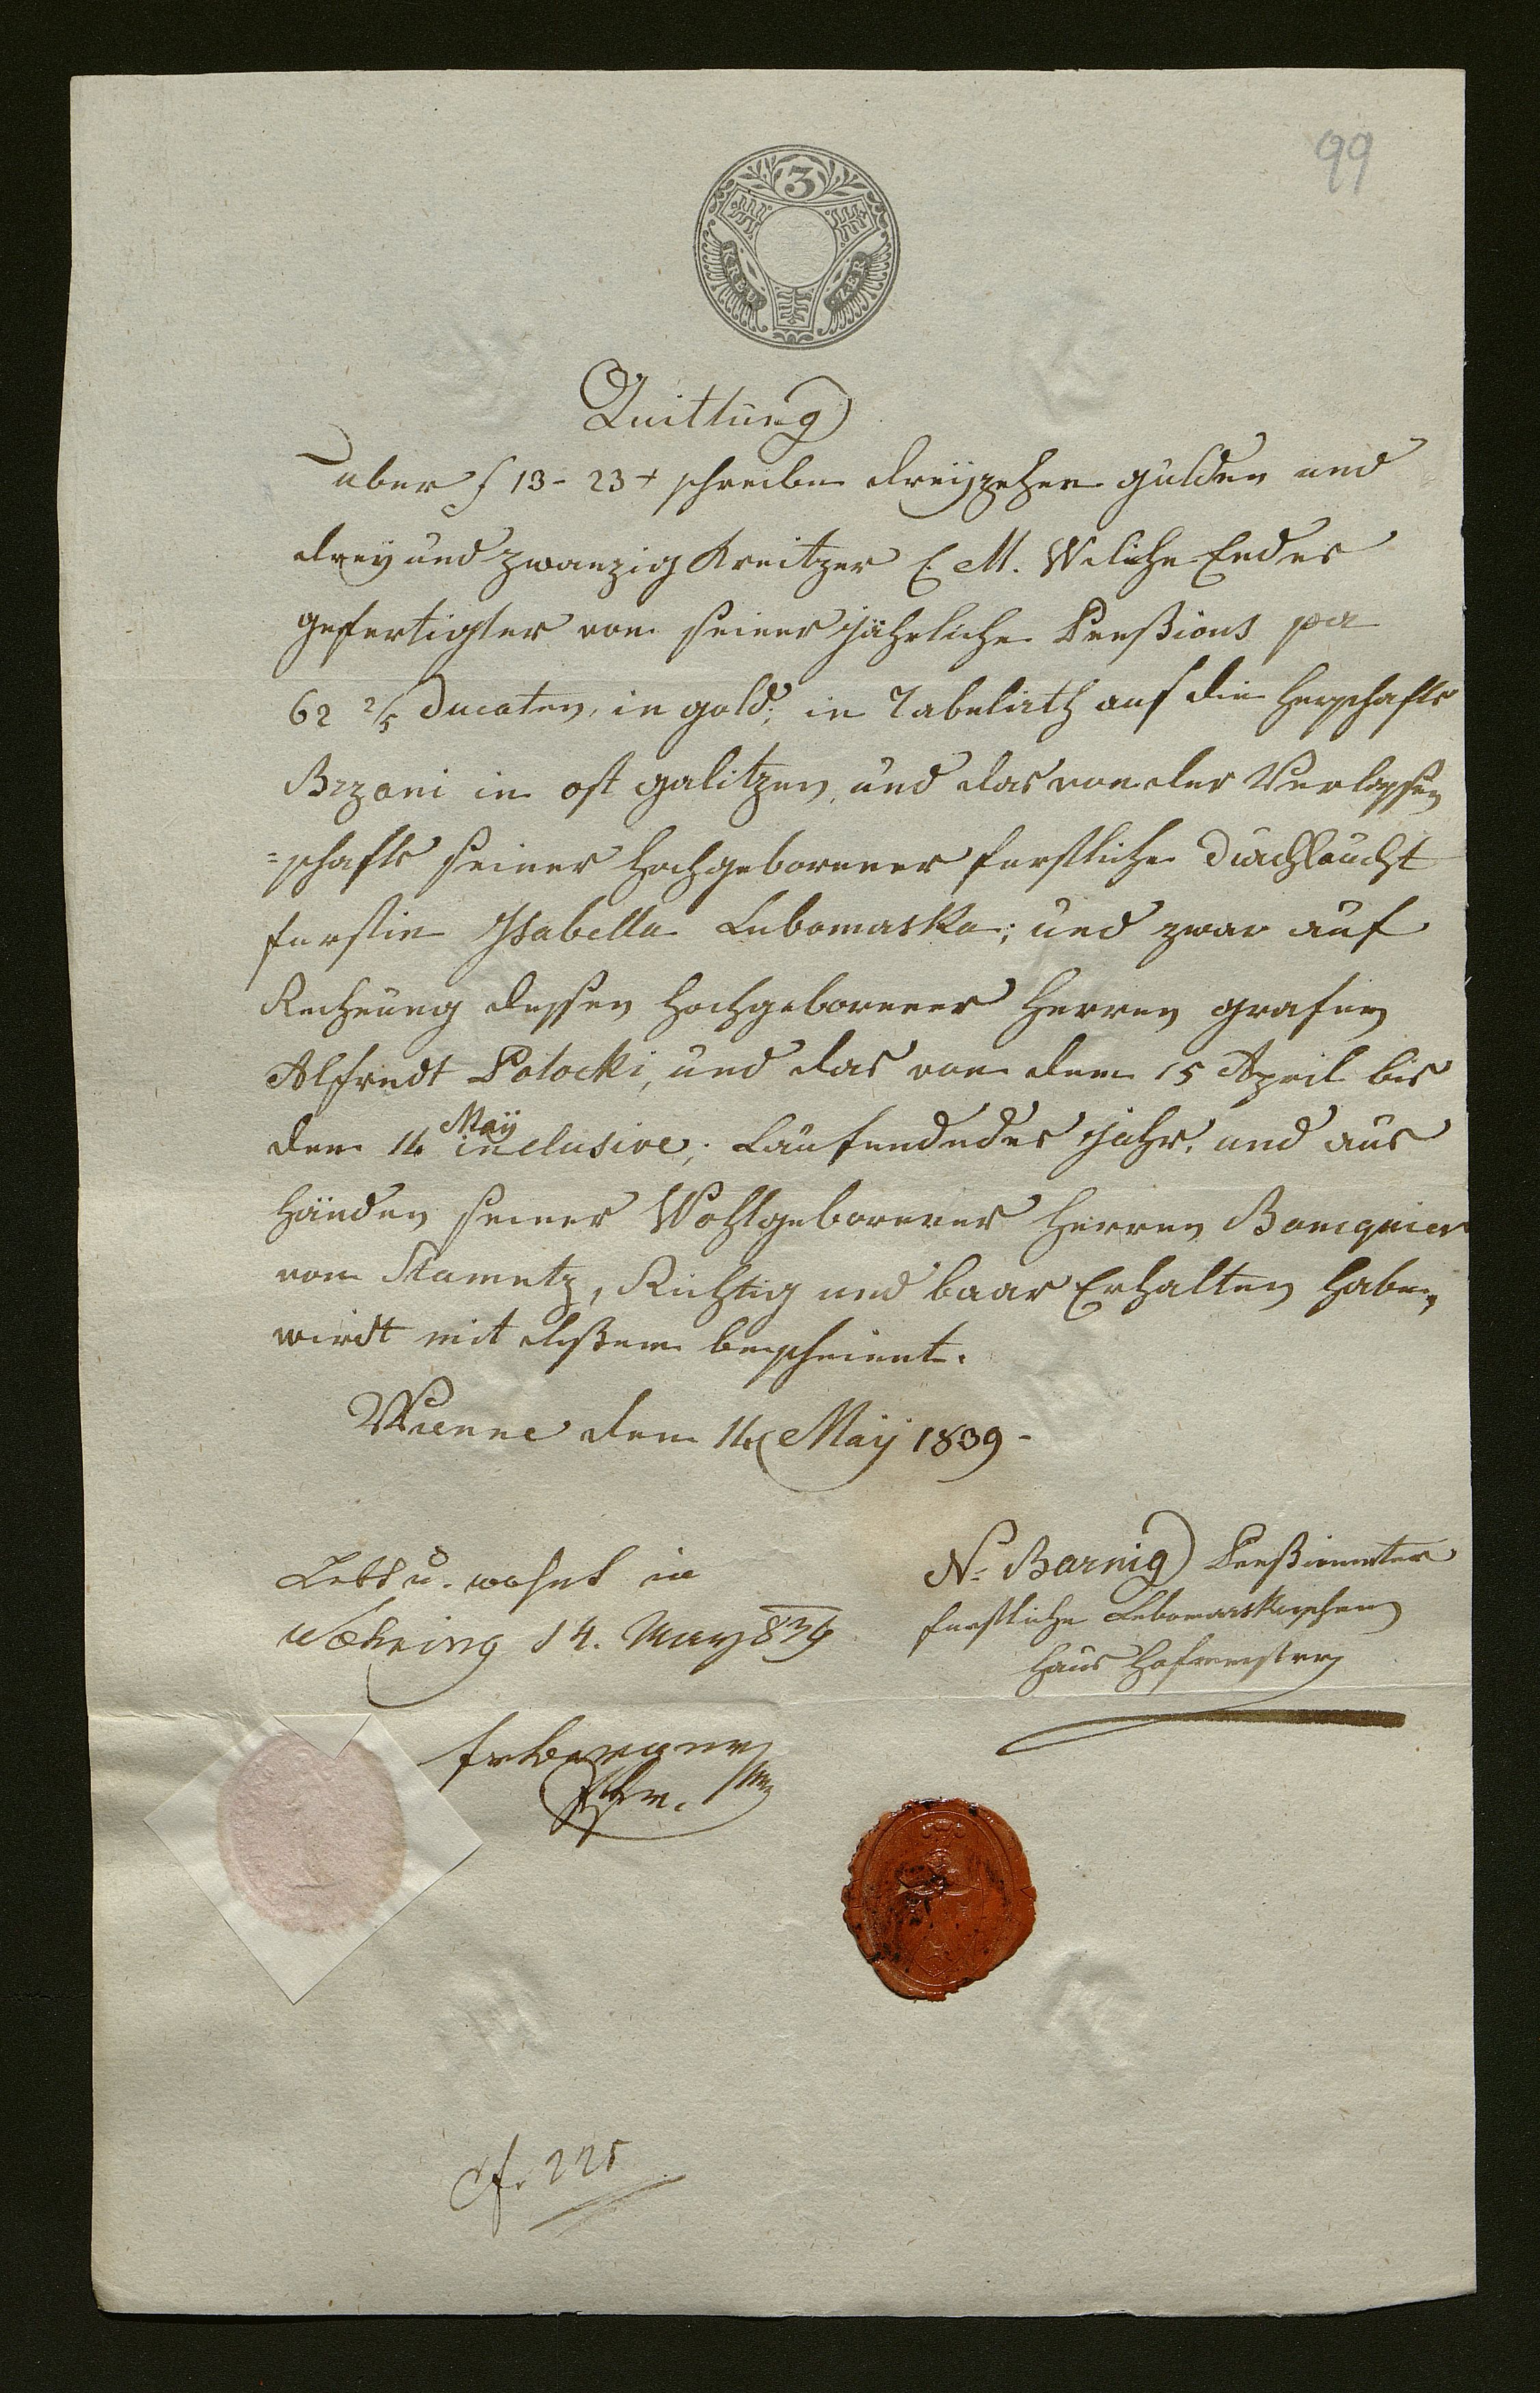 99
3
KREU ZER
Quittung
uber f 13 - 23 x schreibe dreyzehen gulden und
drey und zwanzig Kreitzer C. M. Weliche Endes
gefertigter von seiner jährliche Penßions pr
62 2/5 Ducaten, in gold; in Tabelirth auf die Herschafts
Brzani in ost galitzen, und das von der Verlassen
=schafts seiner Hochgeborener furstliche Durchlaucht
furstin Isabella Lubomaska; und zwar auf
Rechnung dessen Hochgeborener Herren grafen
Alfredt Potocki, und das von dem 15 April bis
dem 14 May inclusive; Laufendedes jahr, und aus
Händen seiner Wohlgeborener Herren Bancquier
von Stametz, Richtig und baar Erhalten Haben,
wirdt mit dißem bescheint.
Wienne dem 14 Maÿ 1839 -
N: Barnig Penßionister
furstliche Lubomarskischen
Haus Hofmeister
Lebt u. wohnt in
Wæhring 14. May 839
Cf. 225